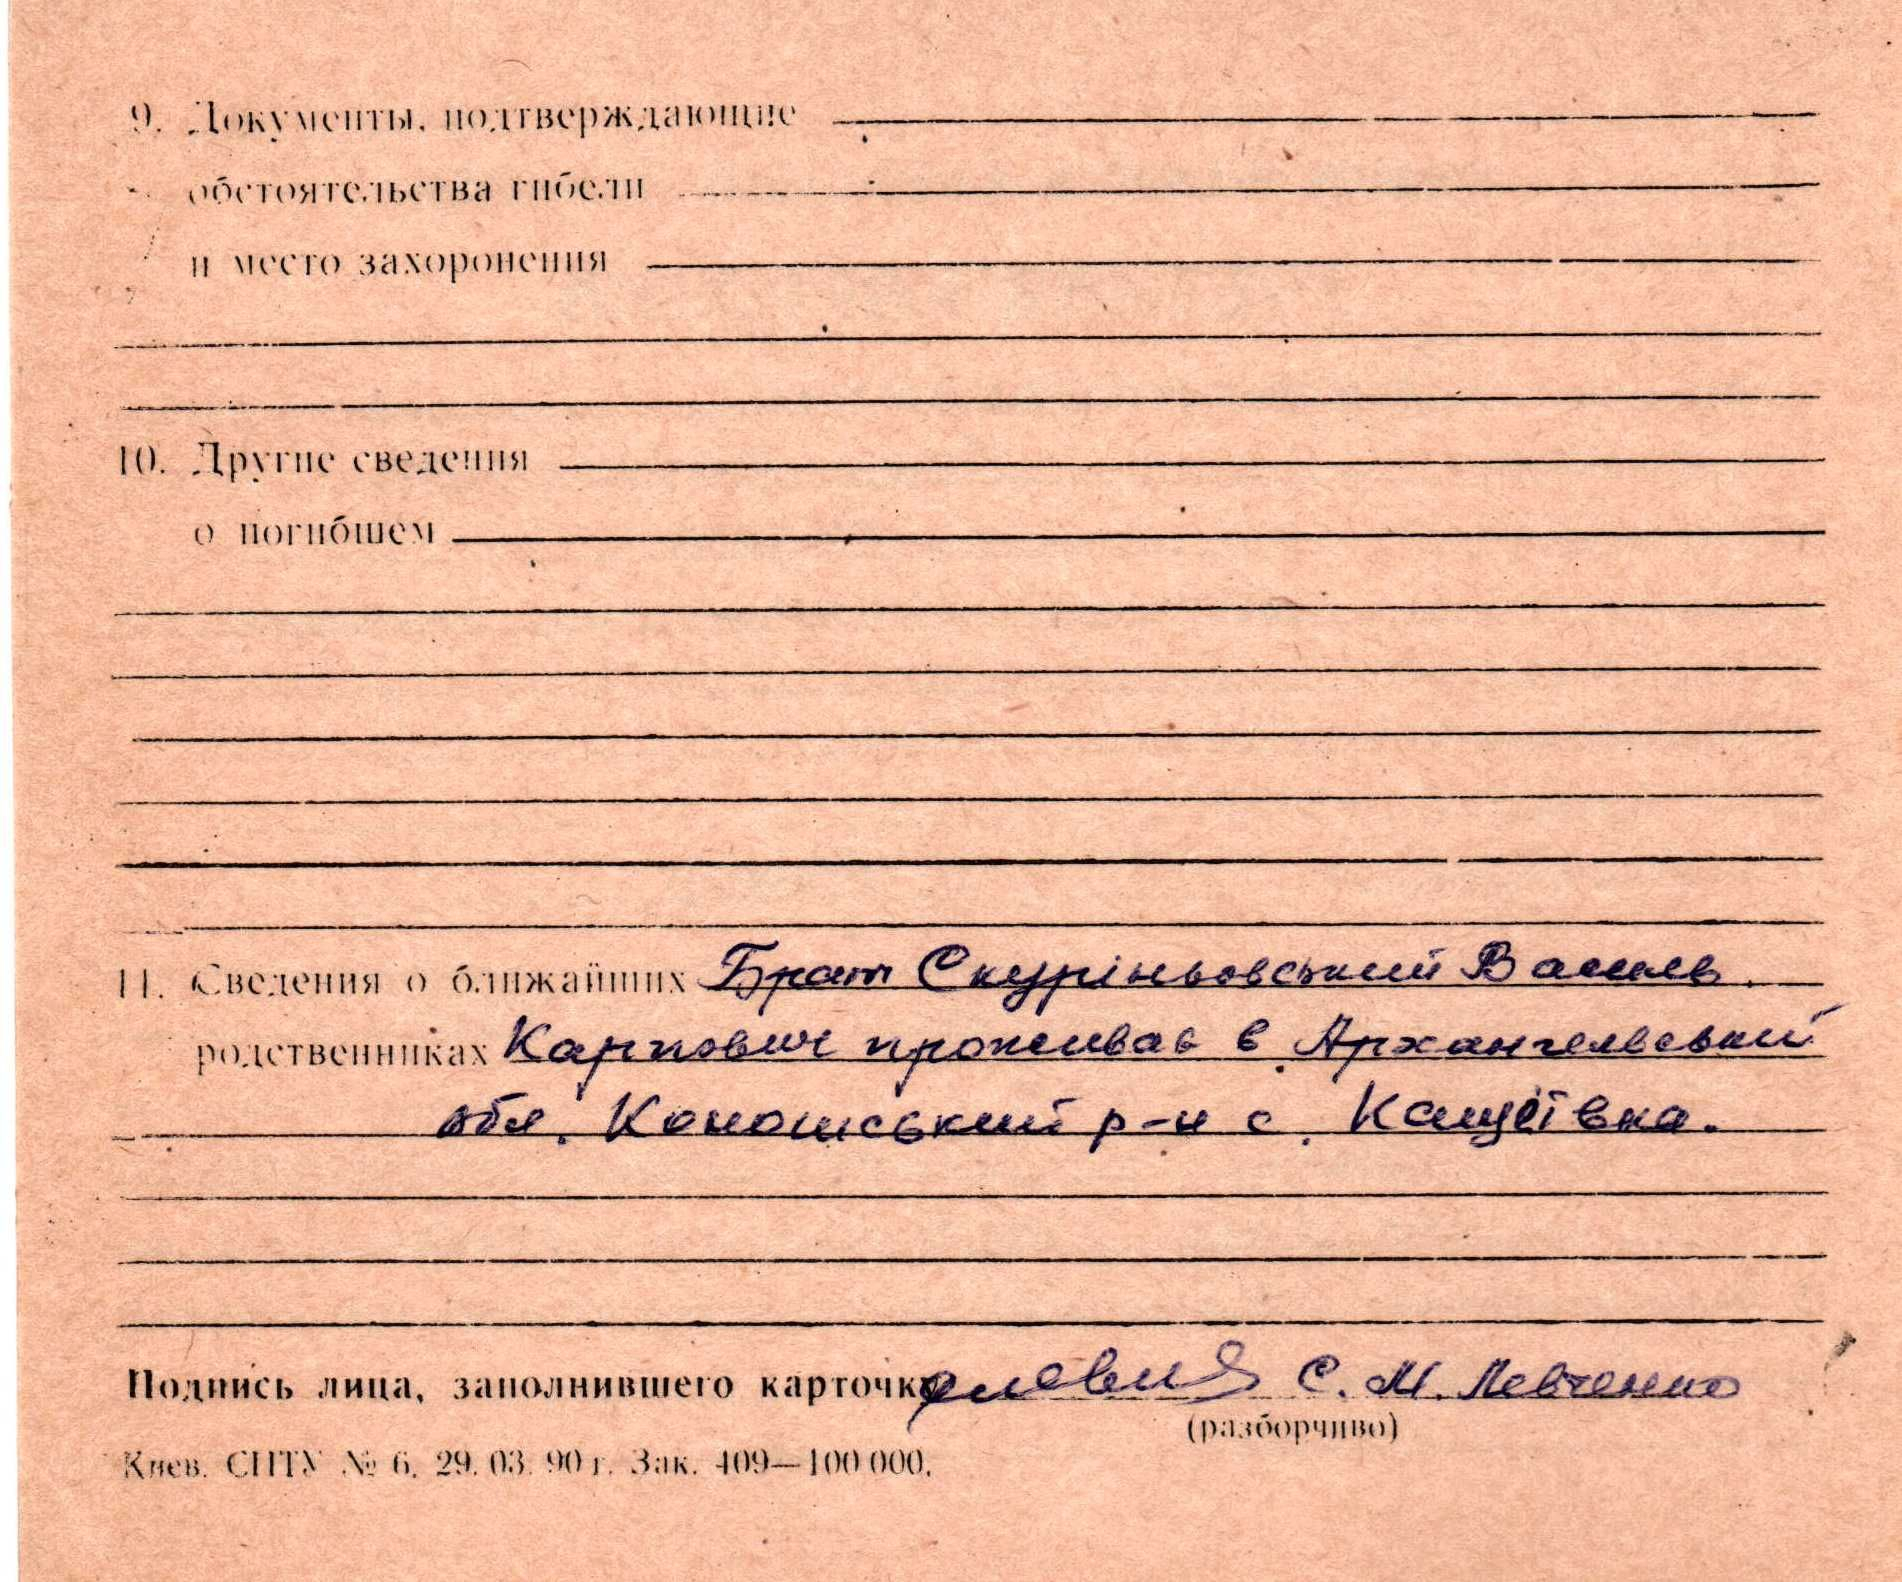 9. Документы, подтверждающие
обстоятельства гибели
и место захоронения
10. Другие сведения
о погибшем
11. Сведения о ближайших Брат Скуріньовський Василь
родственниках Карпович проживав в Архангельській
обл. Коношський р-н с. Кащеївка.
Подпись лица, заполнившего карточку С. М. Левченко
(разборчиво)
Киев. СПТУ № 6. 29. 03. 90 г. Зак. 409—100 000.